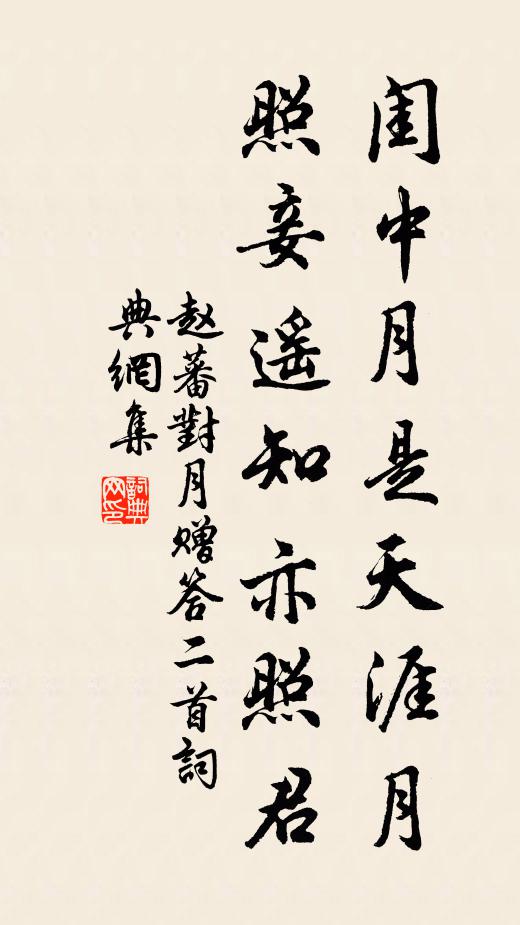 闺中月是天涯月
照妾遥知亦照君
赵蕃對月赠答二首詞
典網集
詞典
网印